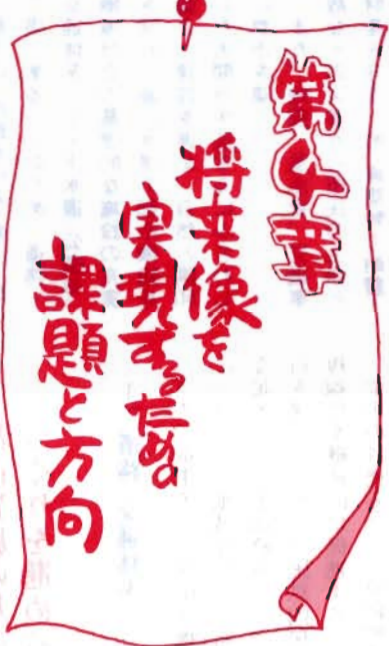 第4章
将来像を
実現するための
課題と方向